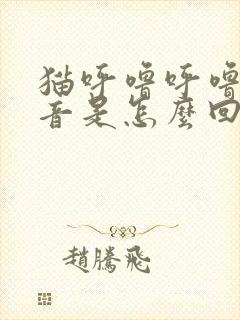 猫呼噜呼噜
音是怎麼回
趙騰飛